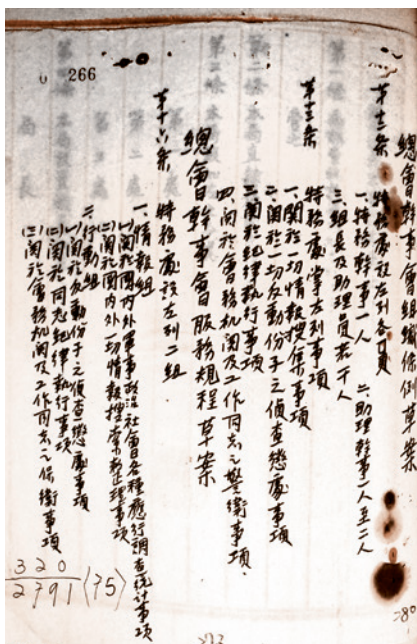 總會幹事會組織條例草案
第十二条 特務處設左列各員
一、特務幹事一人 二、助理幹事一人至二人
三、組長及助理員若干人
第十三条 特務處掌左列事項
一、關於一切情報搜集事項
二、関於一切反動份子之偵查懲處事項
三、関於紀律執行事項
四、関於會務机関及工作同志之警衛事項
總會幹事會服務規程草案
第十六條 特務處設左列二組
一、情報組
㈠関於國內外軍事政治社會各種應行調查統計事項
㈡関於國內外一切情報搜索整理事項
二、行動組
㈠関於反動份子之偵查懲處事項
㈡関於同志紀律執行事項
㈢関於會務机関及工作同志之保衛事項
266
320
2791
(75)
280